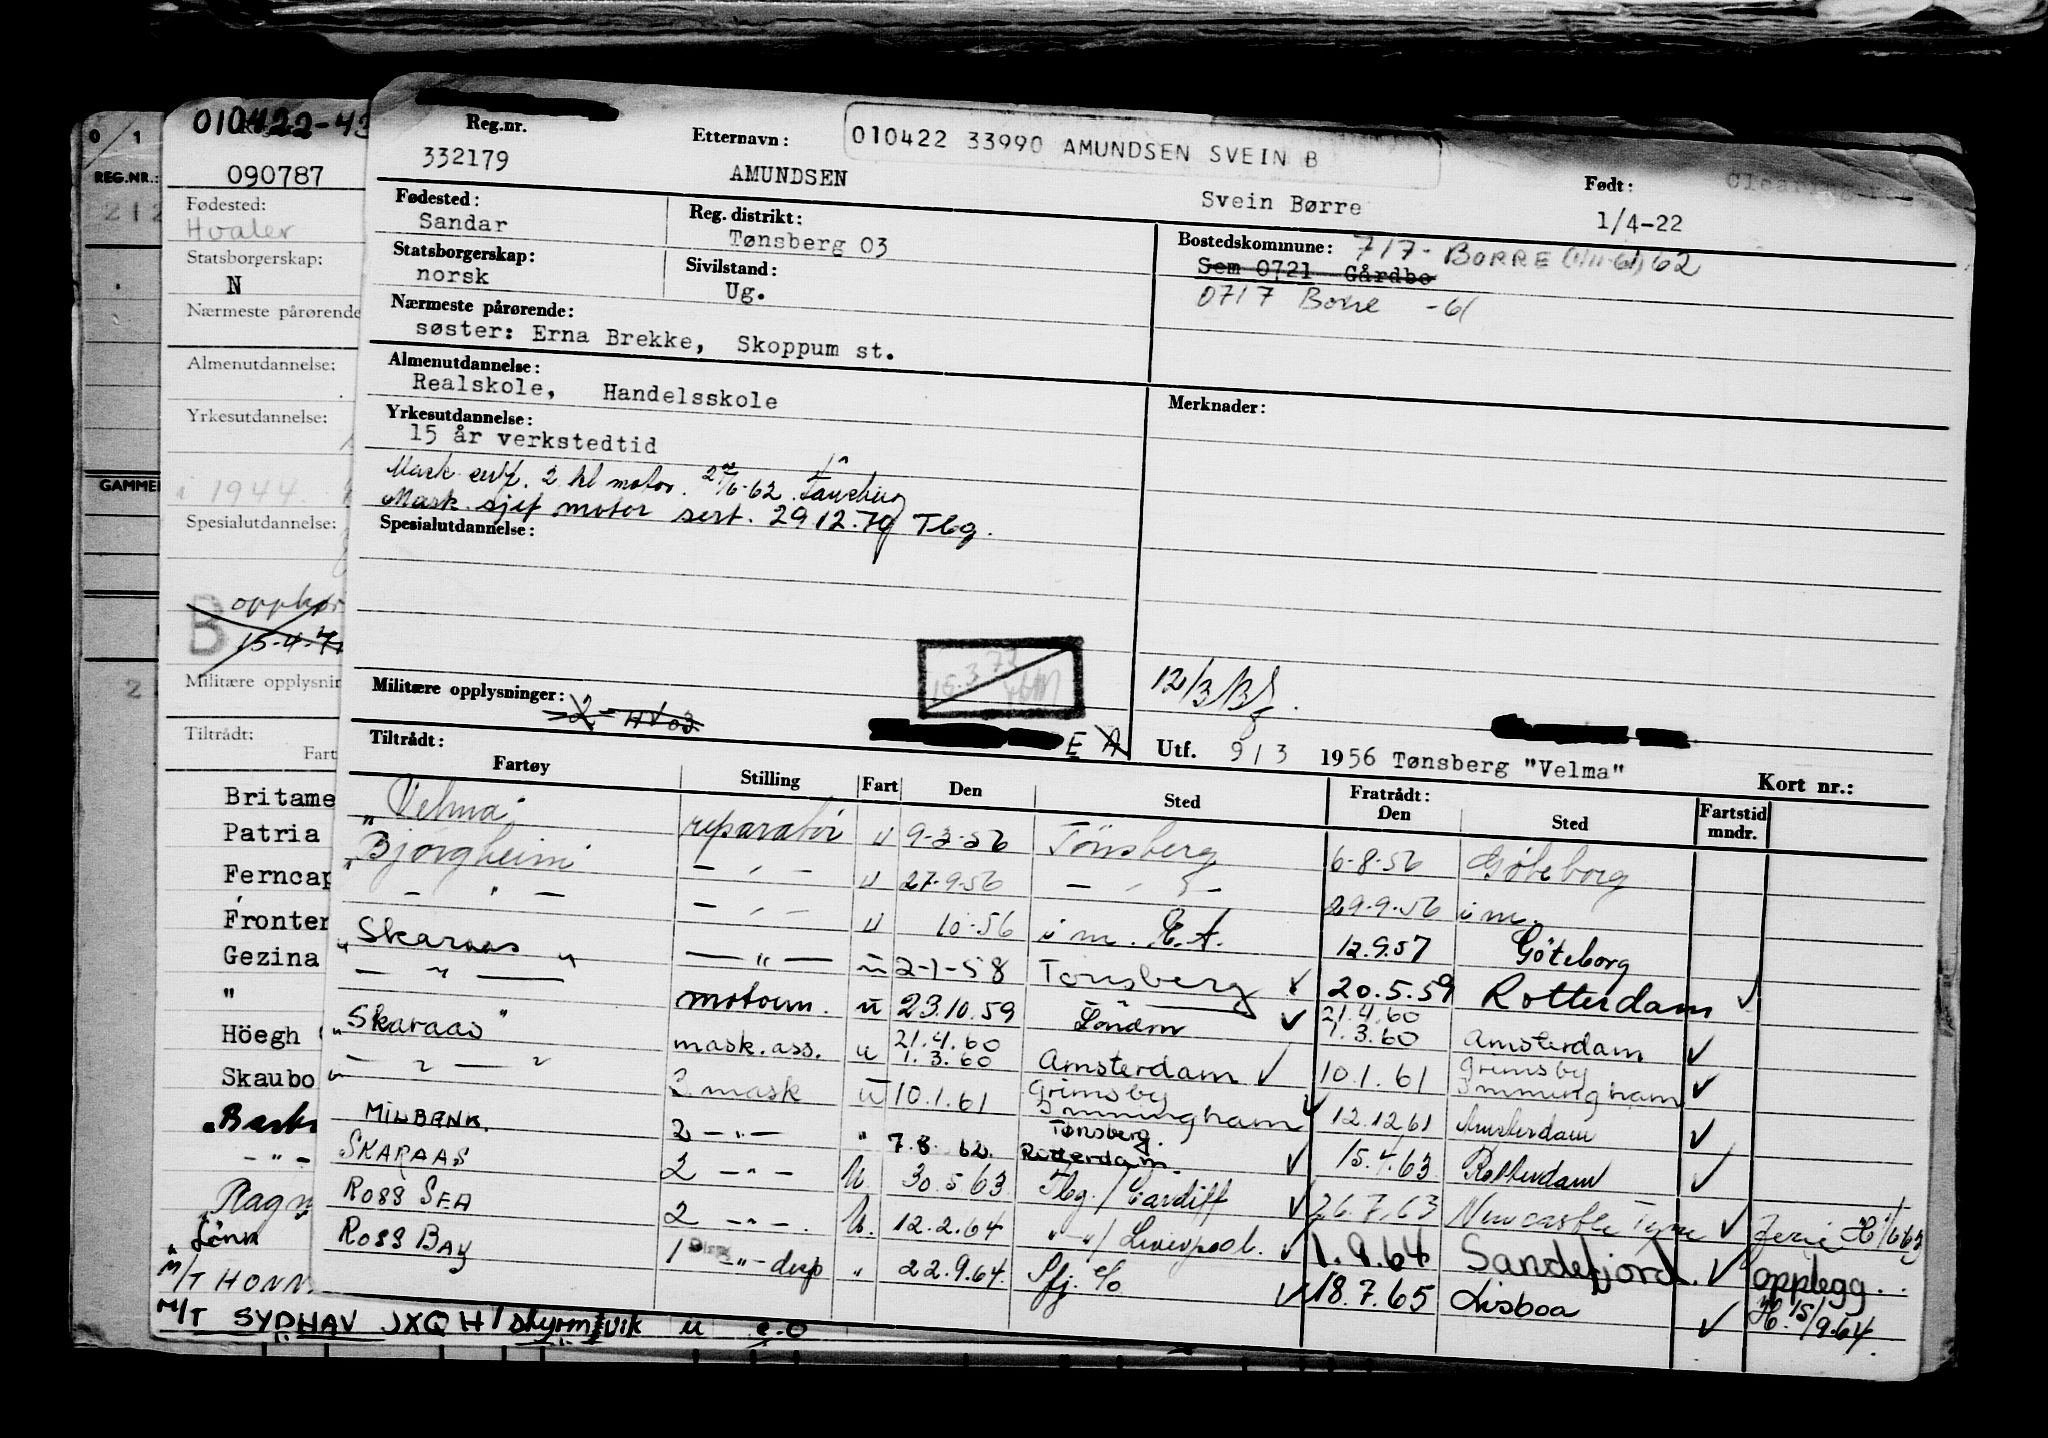 010422-43
Reg.nr.
332179
Etternavn:
AMUNDSEN
010422 33990 AMUNDSEN SVEIN B
Svein Børre
Født:
1/4-22
0/1
REG.NR.:
212
090787
Fødested:
Hvaler
Statsborgerskap:
N
Nærmeste pårørende
Almenutdannelse:
Yrkesutdannelse:
i 1944.
GAMMEL
Spesialutdannelse:
B
15-4-
Militære opplysnin
Tiltrådt:
Fart
Britame
Patria
Ferncap
Fronter
Gezina
"
Höegh
Skaubo
- " -
Ragn
M/T HONN
M/T SYDHAV JXQH/ u e.o
Fødested:
Sandar
Reg. distrikt:
Tønsberg 03
Bostedskommune: 717 - BORRE (1/11-61) 62
Sem 0721 Gårdbo
0717 Borre -61
Statsborgerskap:
norsk
Sivilstand:
Ug.
Nærmeste pårørende:
søster: Erna Brekke, Skoppum st.
Almenutdannelse:
Realskole, Handelsskole
Merknader:
Yrkesutdannelse:
15 år verkstedtid
Mask. 2 kl motor.
Mask. sjef motor sert. 29.12.70 Tbg.
Spesialutdannelse:
Militære opplysninger:
E A
Utf. 9/3 1956 Tønsberg "Velma"
Kort nr.:
Tiltrådt:
Fartøy Stilling Fart Den Sted Fratrådt: Den Sted Fartstid mndr.
"Velma" reparatör u 9-3-56 Tönsberg 6-8-56 Göteborg
"Bjorgheim - " - u 27-9-56 - " - 29-9-56 i m.
" - " - - " - u 10-56 i m. 12.9.57 Göteborg
"Skaraas" - " - u 2-1-58 Tönsberg ✓ 20.5.59 Rotterdam ✓
- " - motorm. u 23.10.59 London ✓ 21.4.60 1.3.60 Amsterdam ✓
"Skaraas" mask.ass. u 21.4.60 1.3.60 Amsterdam ✓ 10.1.61 Grimsby Immingham ✓
- " - 3 mask u 10.1.61 Grimsby Immingham ✓ 12.12.61 Amsterdam ✓
MILBANK. 2 - " - " 7.8.62. Tønsberg. Rotterdam. ✓ 15.4.63 Rotterdam ✓
SKARAAS 2 - " - u. 30.5.63 Tbg./Cardiff ✓ 26.7.63 Newcastle Tyne ✓
ROSS SEA 2 - " - u. 12.2.64 " "/Liverpool. ✓ 1.9.64 Sandefjord. ✓ opplegg..
ROSS BAY 1 Disp " - disp " 22.9.64. Sfj. e/o ✓ 18.7.65 Lisboa ✓ 15/9.64.